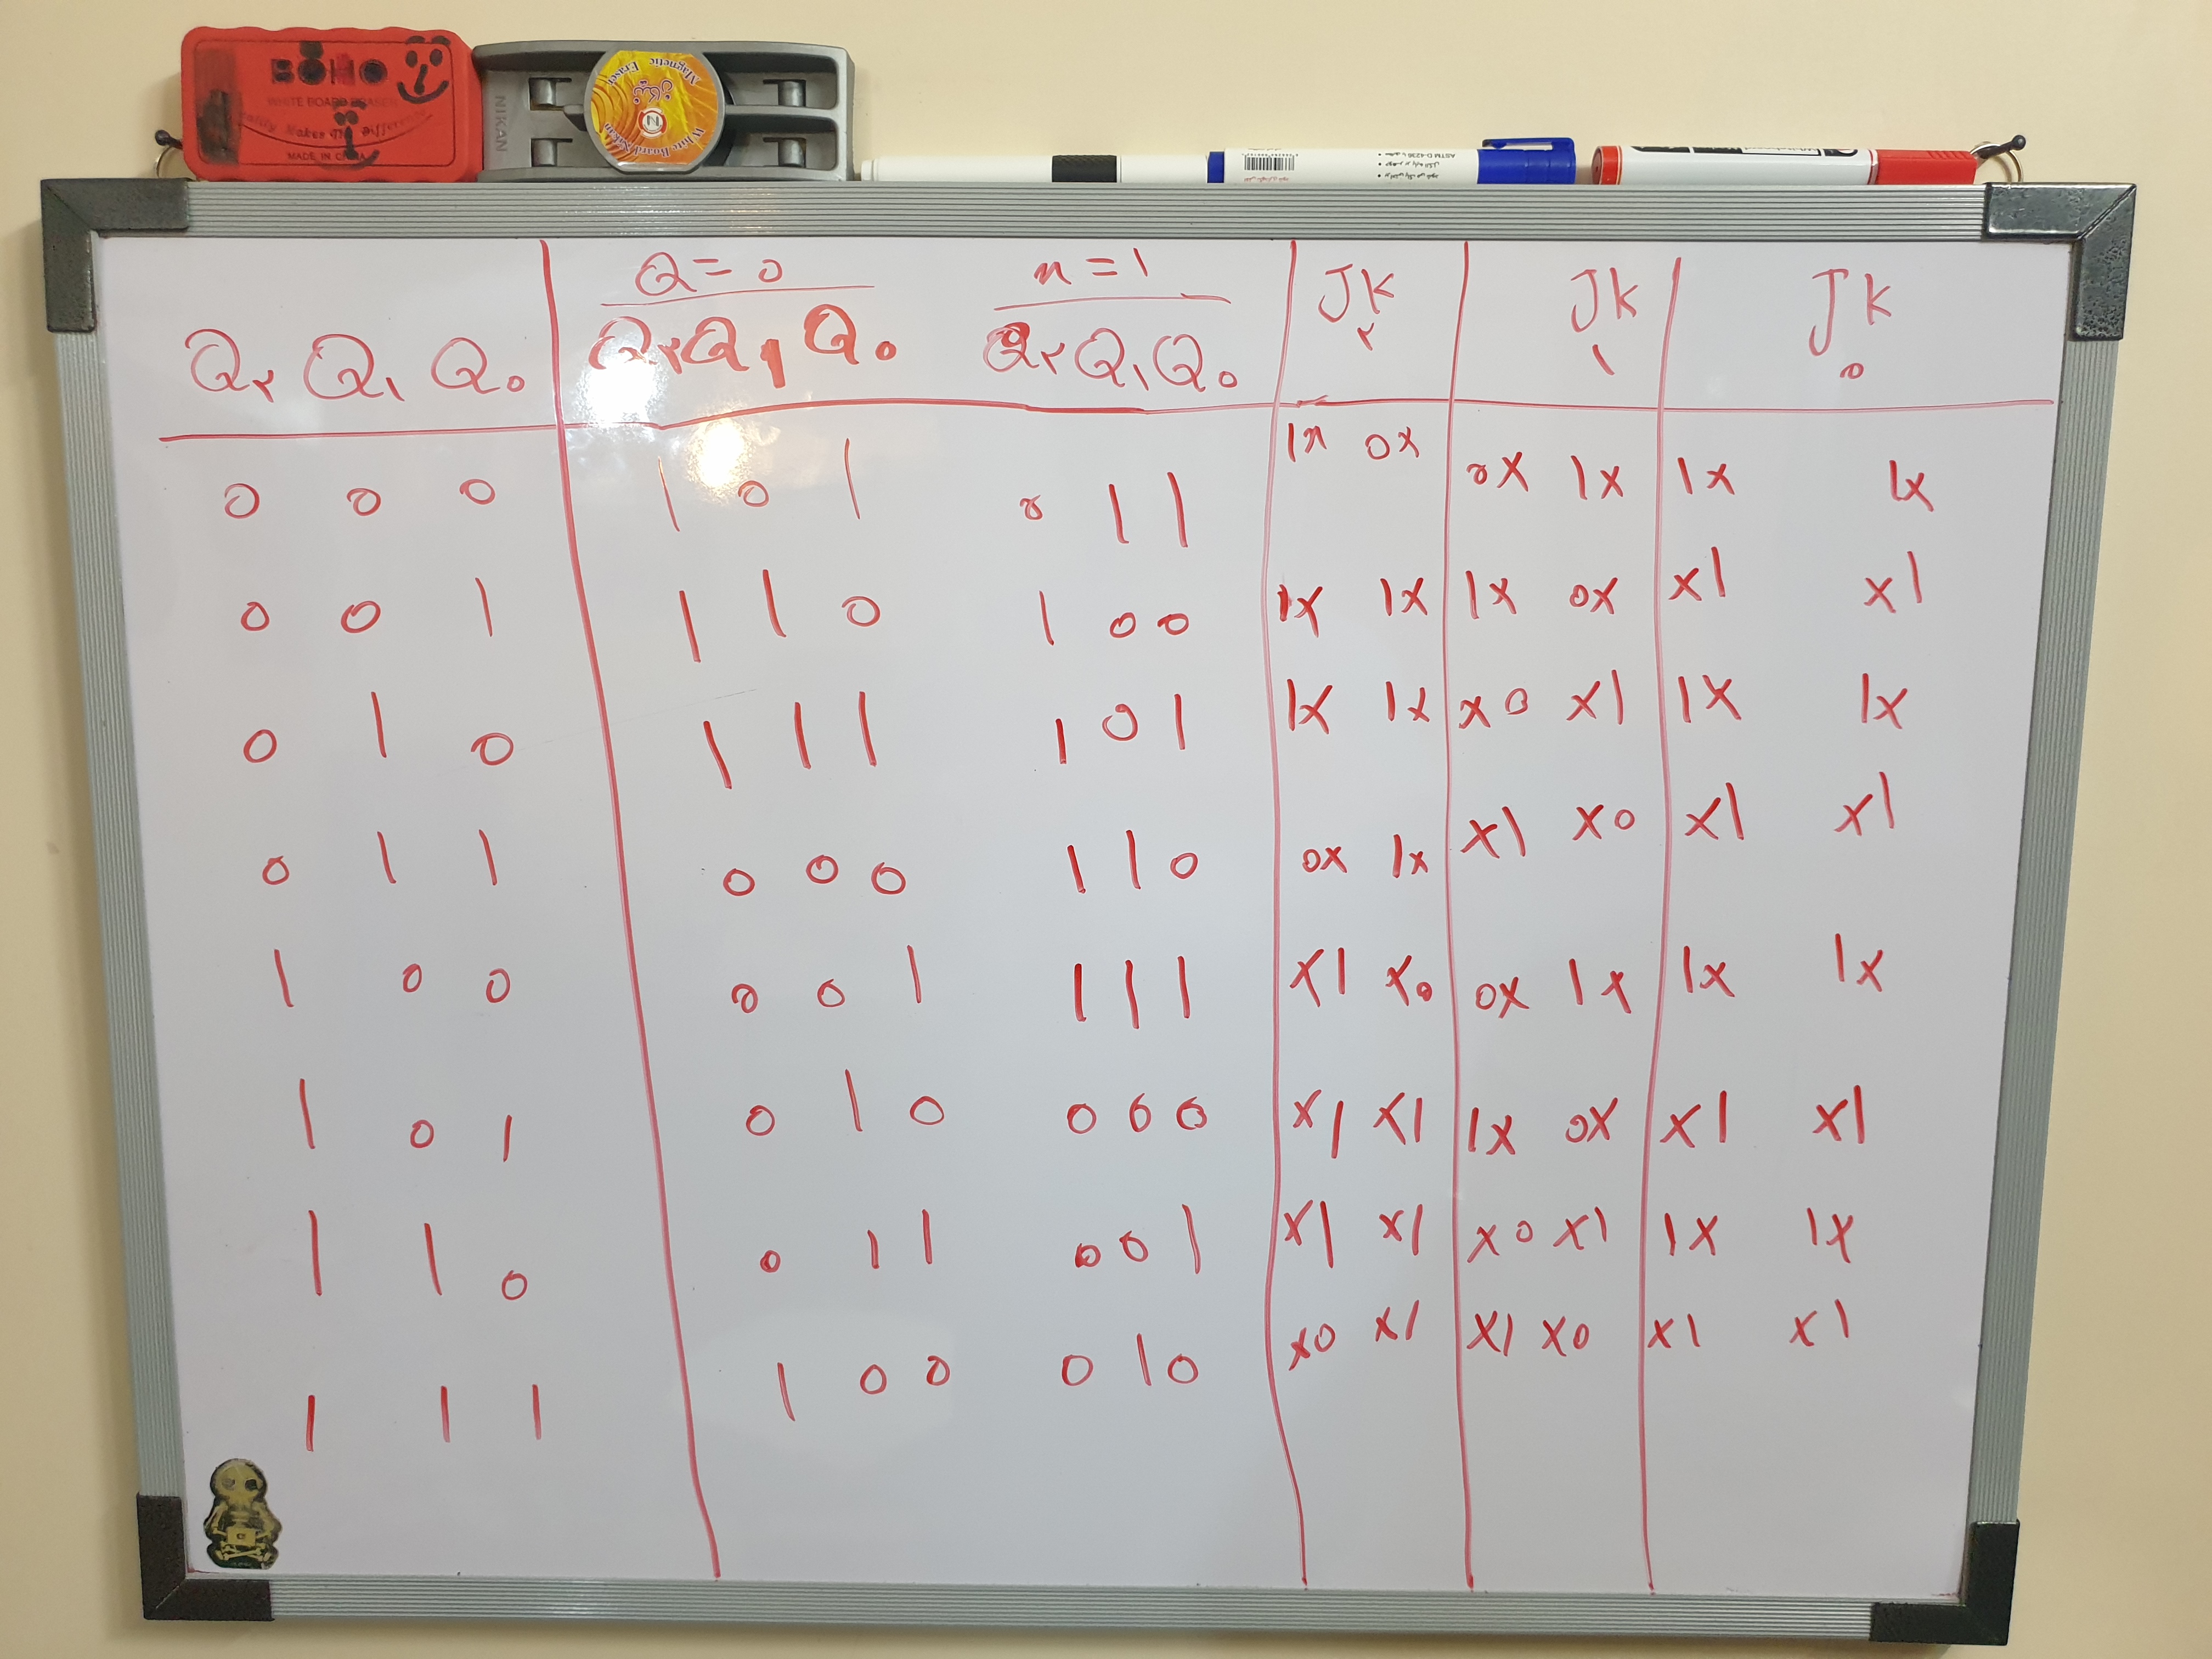 BOHO
WHITE BOARD ERASER
Quality Makes The Difference
MADE IN CHINA
NIKAN
Magnetic Eraser
White Board Nikan
N
ASTM D-4236
Q = 0 n = 1 JK JK JK
Q۲ Q۱ Q۰ Q۲ Q۱ Q۰ Q۲ Q۱ Q۰ ۲ ۱ 0
0 0 0 1 0 1 0 1 1 1x 0x 0x 1x 1x 1x
0 0 1 1 1 0 1 0 0 1x 1x 1x 0x x1 x1
0 1 0 1 1 1 1 0 1 1x 1x x0 x1 1x 1x
0 1 1 0 0 0 1 1 0 0x 1x x1 x0 x1 x1
1 0 0 0 0 1 1 1 1 x1 x0 0x 1x 1x 1x
1 0 1 0 1 0 0 0 0 x1 x1 1x 0x x1 x1
1 1 0 0 1 1 0 0 1 x1 x1 x0 x1 1x 1x
1 1 1 1 0 0 0 1 0 x0 x1 x1 x0 x1 x1